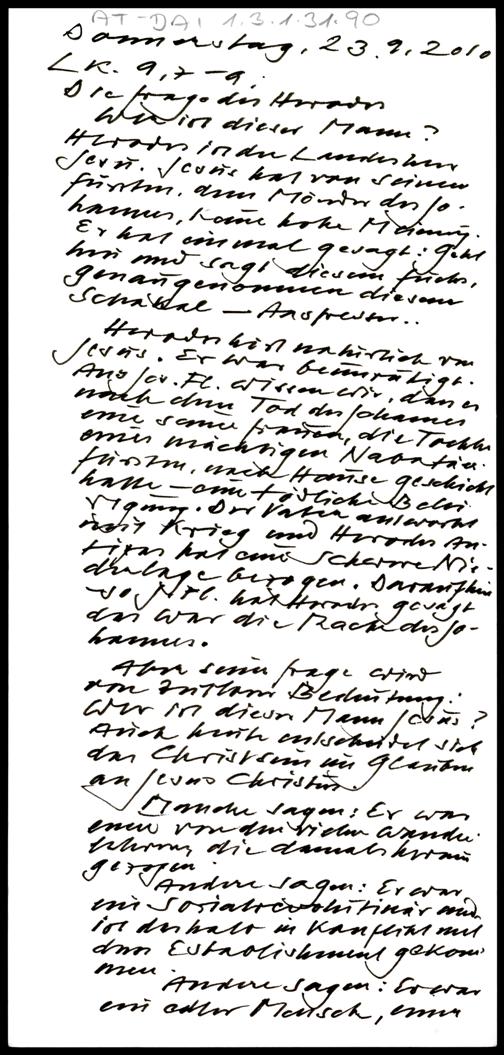 AT-DA1 1.3.1.31.90
Donnerstag, 23.9.2010
Lk. 9,7-9.
Die Frage des Herodes
Wer ist dieser Mann?
Herodes ist der Landesherr
Jesu. Jesus hat von seinem
Fürsten, dem Mörder des Jo-
hannes, keine hohe Meinung.
Er hat einmal gesagt: Geht
hin und sagt diesem Fuchs,
genaugenommen diesem
Schakal — Auspressen..
Herodes hört natürlich von
Jesus. Er war beunruhigt.
Aus Jos. Fl. wissen wir, dass er
nach dem Tod des Johannes
eine seine Frauen, die Tochter
eines mächtigen Nabatäer-
fürsten, nach Hause geschickt
hatte – eine tödliche Belei-
digung. Der Vater antwortet
mit Krieg und Herodes An-
tipas hat eine schwere Nie-
derlage bezogen. Daraufhin
- so J. Fl. hat Herodes gesagt
das war die Rache des Jo-
hannes.
Aber seine Frage wird
von zeitloser Bedeutung:
Wer ist dieser Mann Jesus?
Auch heute entscheidet sich
das Christsein im Glauben
an Jesus Christus.
Manche sagen: Er war
einer von den vielen Wander-
lehrern, die damals herum
gezogen.
Andere sagen: Er war
ein Sozialrevolutionär und
ist deshalb in Konflikt mit
dem Establishment gekom-
men.
Andere sagen: Er war
ein edler Mensch, einer